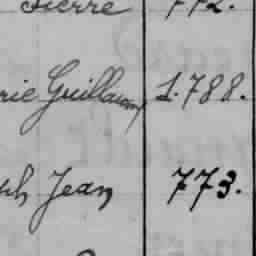 Pierre 772.
rie Guillaumy 1.788.
ph Jean 773.